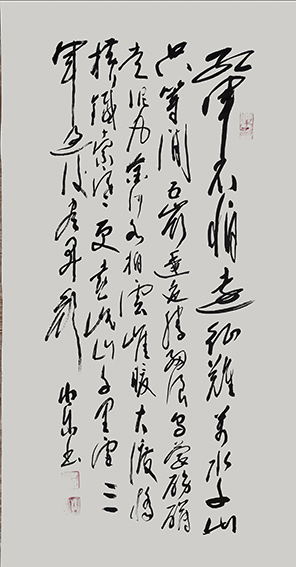 紅軍不怕遠征難萬水千山
只等閒五嶺逶迤騰細浪烏蒙磅礴
走泥丸金沙水拍雲崖暖大渡橋
橫鐵索寒更喜岷山千里雪三
軍過後盡開顏